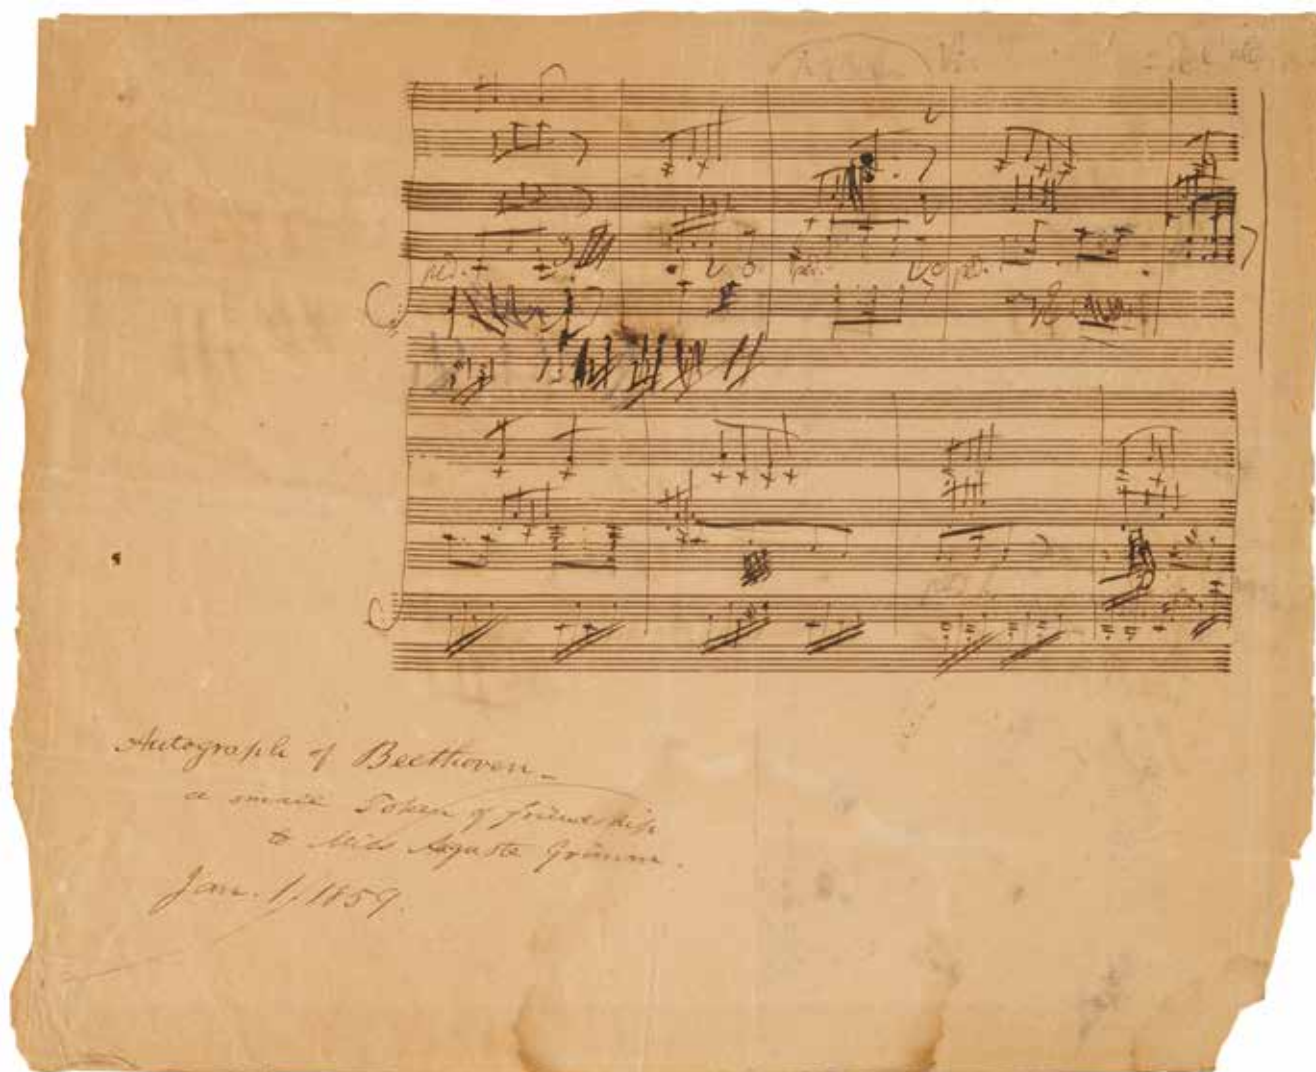 ped. ped. ped.
Autograph of Beethoven –
a small Token of friendship
to Miss Auguste Grimm.
Jan. 1, 1859.